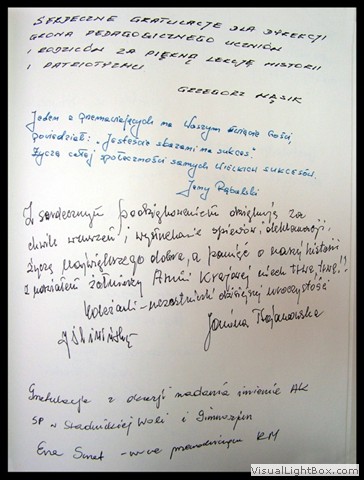 SERDECZNE GRATULACJE DLA DYREKCJI
GRONA PEDAGOGICZNEGO UCZNIÓW
I RODZICÓW ZA PIĘKNĄ LEKCJĘ HISTORII
I PATRIOTYZMU
GRZEGORZ MĄSIK
Jeden z przemawiających na Waszym święcie Gości,
powiedział: "Jesteście skazani na sukces."
Życzę całej społeczności samych wielkich sukcesów.
Jerzy Rąbalski
Z serdecznym podziękowaniem dziękuję za
chwile wzruszeń i wysłuchanie śpiewów i deklamacji,
życzę największego dobra, a pamięć o naszej historii
z udziałem żołnierzy Armii Krajowej niech trwa, trwa!!
Koleżanki - uczestniczki dzisiejszej uroczystości
Janina
Gratulacje z okazji nadania imienia AK
SP w Stadnickiej Woli i Gimnazjum
Ewa - wice przewodnicząca RM
VisualLightBox.com